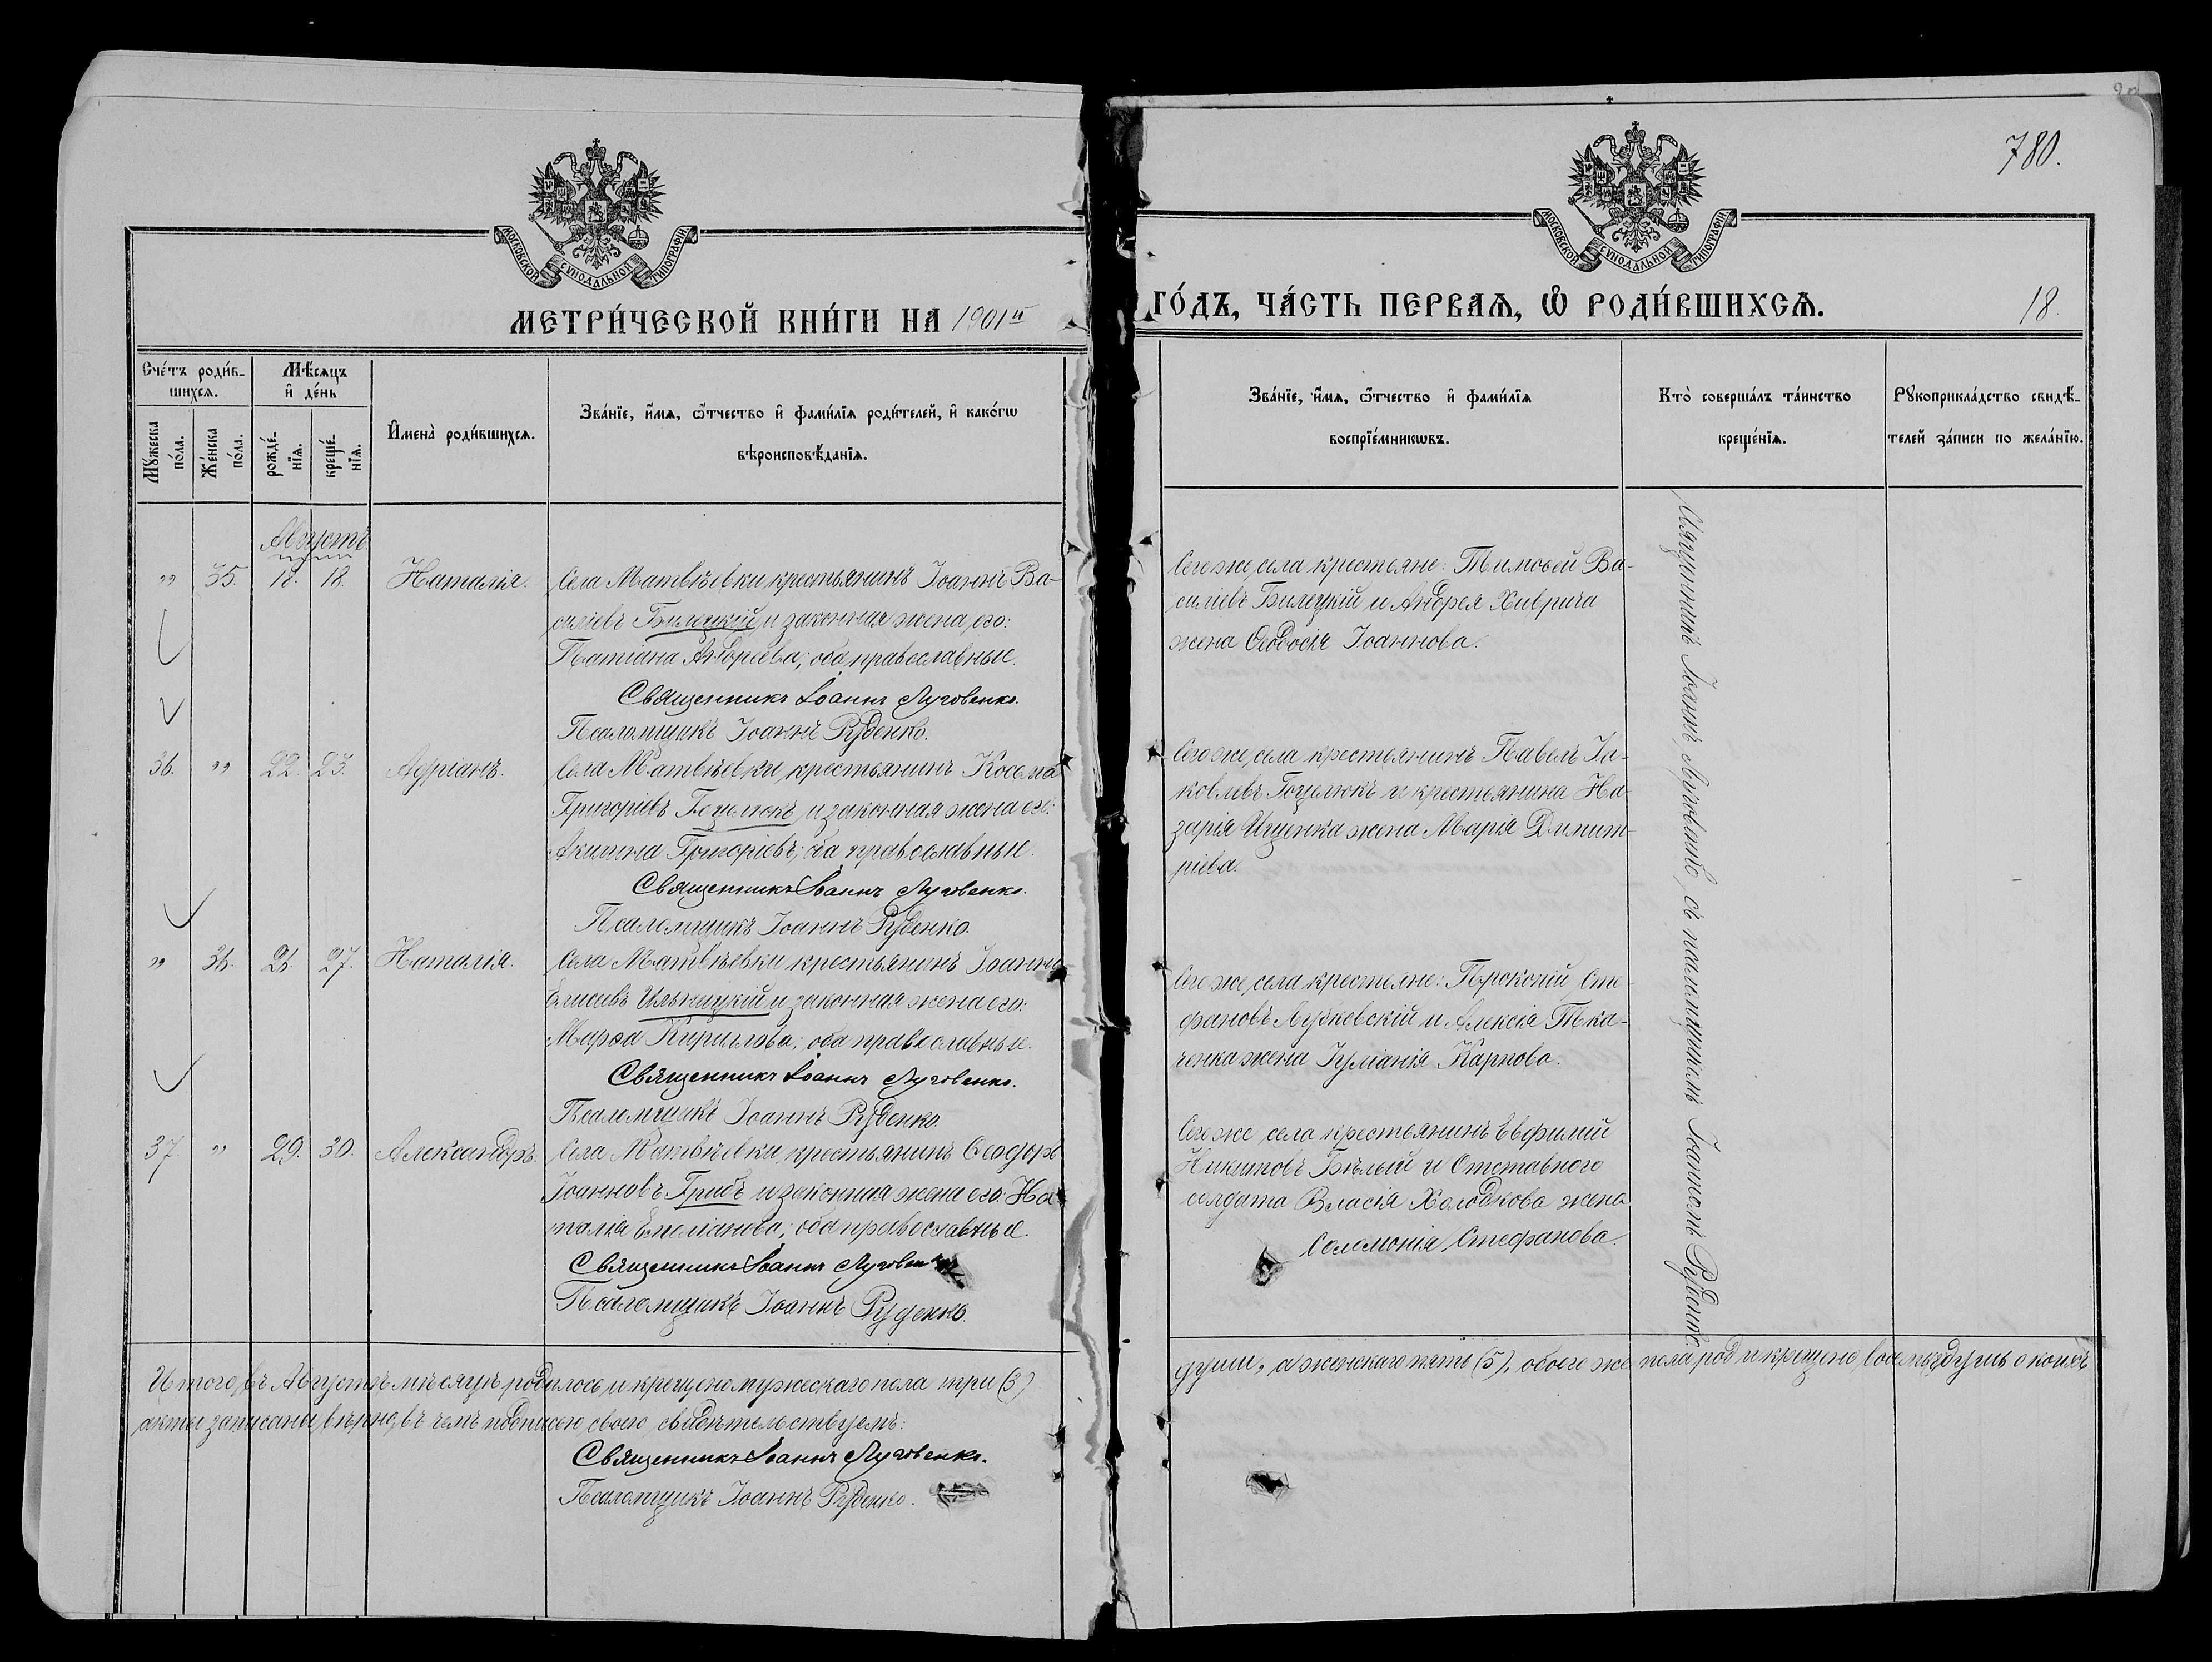 780.
МОСКОВСКОЙ СѴНОДАЛЬНОЙ ТИПОГРАФІИ
МОСКОВСКОЙ СѴНОДАЛЬНОЙ ТИПОГРАФІИ
МЕТРИ́ЧЕСКОЙ КНИ́ГИ НА 1901й ГО́ДЪ, ЧА́СТЬ ПЕРВАѦ, Ѽ РОДИ́ВШИХСѦ. 18.
Сче́тъ роди́в-
шихсѧ.
Мꙋ́жеска по́ла.
Же́нска по́ла.
Мѣ́сѧцъ
и҆ де́нь
рожде́-
нїѧ.
креще́-
нїѧ.
И҆мена̀ роди́вшихсѧ.
Зва́нїе, и҆́мѧ, ѻ҆́тчество и҆ фами́лїѧ роди́телей, и҆ како́гѡ
вѣроисповѣ́данїѧ.
Зва́нїе, и҆́мѧ, ѻ҆́тчество и҆ фами́лїѧ
воспрїе́мникѡвъ.
Кто̀ соверша́лъ та́инство
креще́нїѧ.
Рꙋкоприкла́дство свидѣ́-
телей за́писи по жела́нїю.
Августъ.
" 35. 18. 18. Наталія.
Села Матвѣевки крестьянинъ Іоаннъ Ва-
силіевъ Билецкій и законная жена его:
Татіана Андреева; оба православные.
Священникъ Іоаннъ Луговенко.
Псаломщикъ Іоаннъ Руденко.
Сего же села крестьяне: Тимоѳей Ва-
силіевъ Билецкій и Андрея Хиврича
жена Ѳеодосія Іоаннова.
36. " 22. 23. Адріанъ.
Села Матвѣевки крестьянинъ Косьма
Григоріевъ Гоцелюкъ и законная жена его:
Акилина Григоріевъ; оба православные.
Священникъ Іоаннъ Луговенко.
Псаломщикъ Іоаннъ Руденко.
Сего же села крестьянинъ Павелъ Іа-
ковлевъ Гоцелюкъ и крестьянина На-
зарія Ищенка жена Марія Димит-
ріева.
" 36. 26. 27. Наталія.
Села Матвѣевки крестьянинъ Іоаннъ
Елисеевъ Ильницкій и законная жена его:
Марѳа Кириллова; оба православные.
Священникъ Іоаннъ Луговенко.
Псаломщикъ Іоаннъ Руденко.
Сего же села крестьяне: Прокопій Сте-
фановъ Лубковскій и Алексія Тка-
ченка жена Іуліанія Карпова.
37. " 29. 30. Александръ.
Села Матвѣевки крестьянинъ Ѳеодоръ
Іоанновъ Грибъ и законная жена его: На-
талія Емеліанова; оба православные.
Священникъ Іоаннъ Луговенко
Псаломщикъ Іоаннъ Руденко.
Сего же села крестьянинъ Евфимій
Никитовъ Бѣлый и Отставного
солдата Власія Холодкова жена
Соломонія Стефанова.
Священникъ Іоаннъ Луговенко, съ псаломщикомъ Іоанномъ Руденко.
Итого въ Августѣ мѣсяцѣ родилось и крещено мужескаго пола три (3) души, а женскаго пять (5), обоего же пола род. и крещено восемь душъ о коихъ
акты записаны вѣрно, въ чемъ подписью своею свидѣтельствуемъ:
Священникъ Іоаннъ Луговенко.
Псаломщикъ Іоаннъ Руденко.